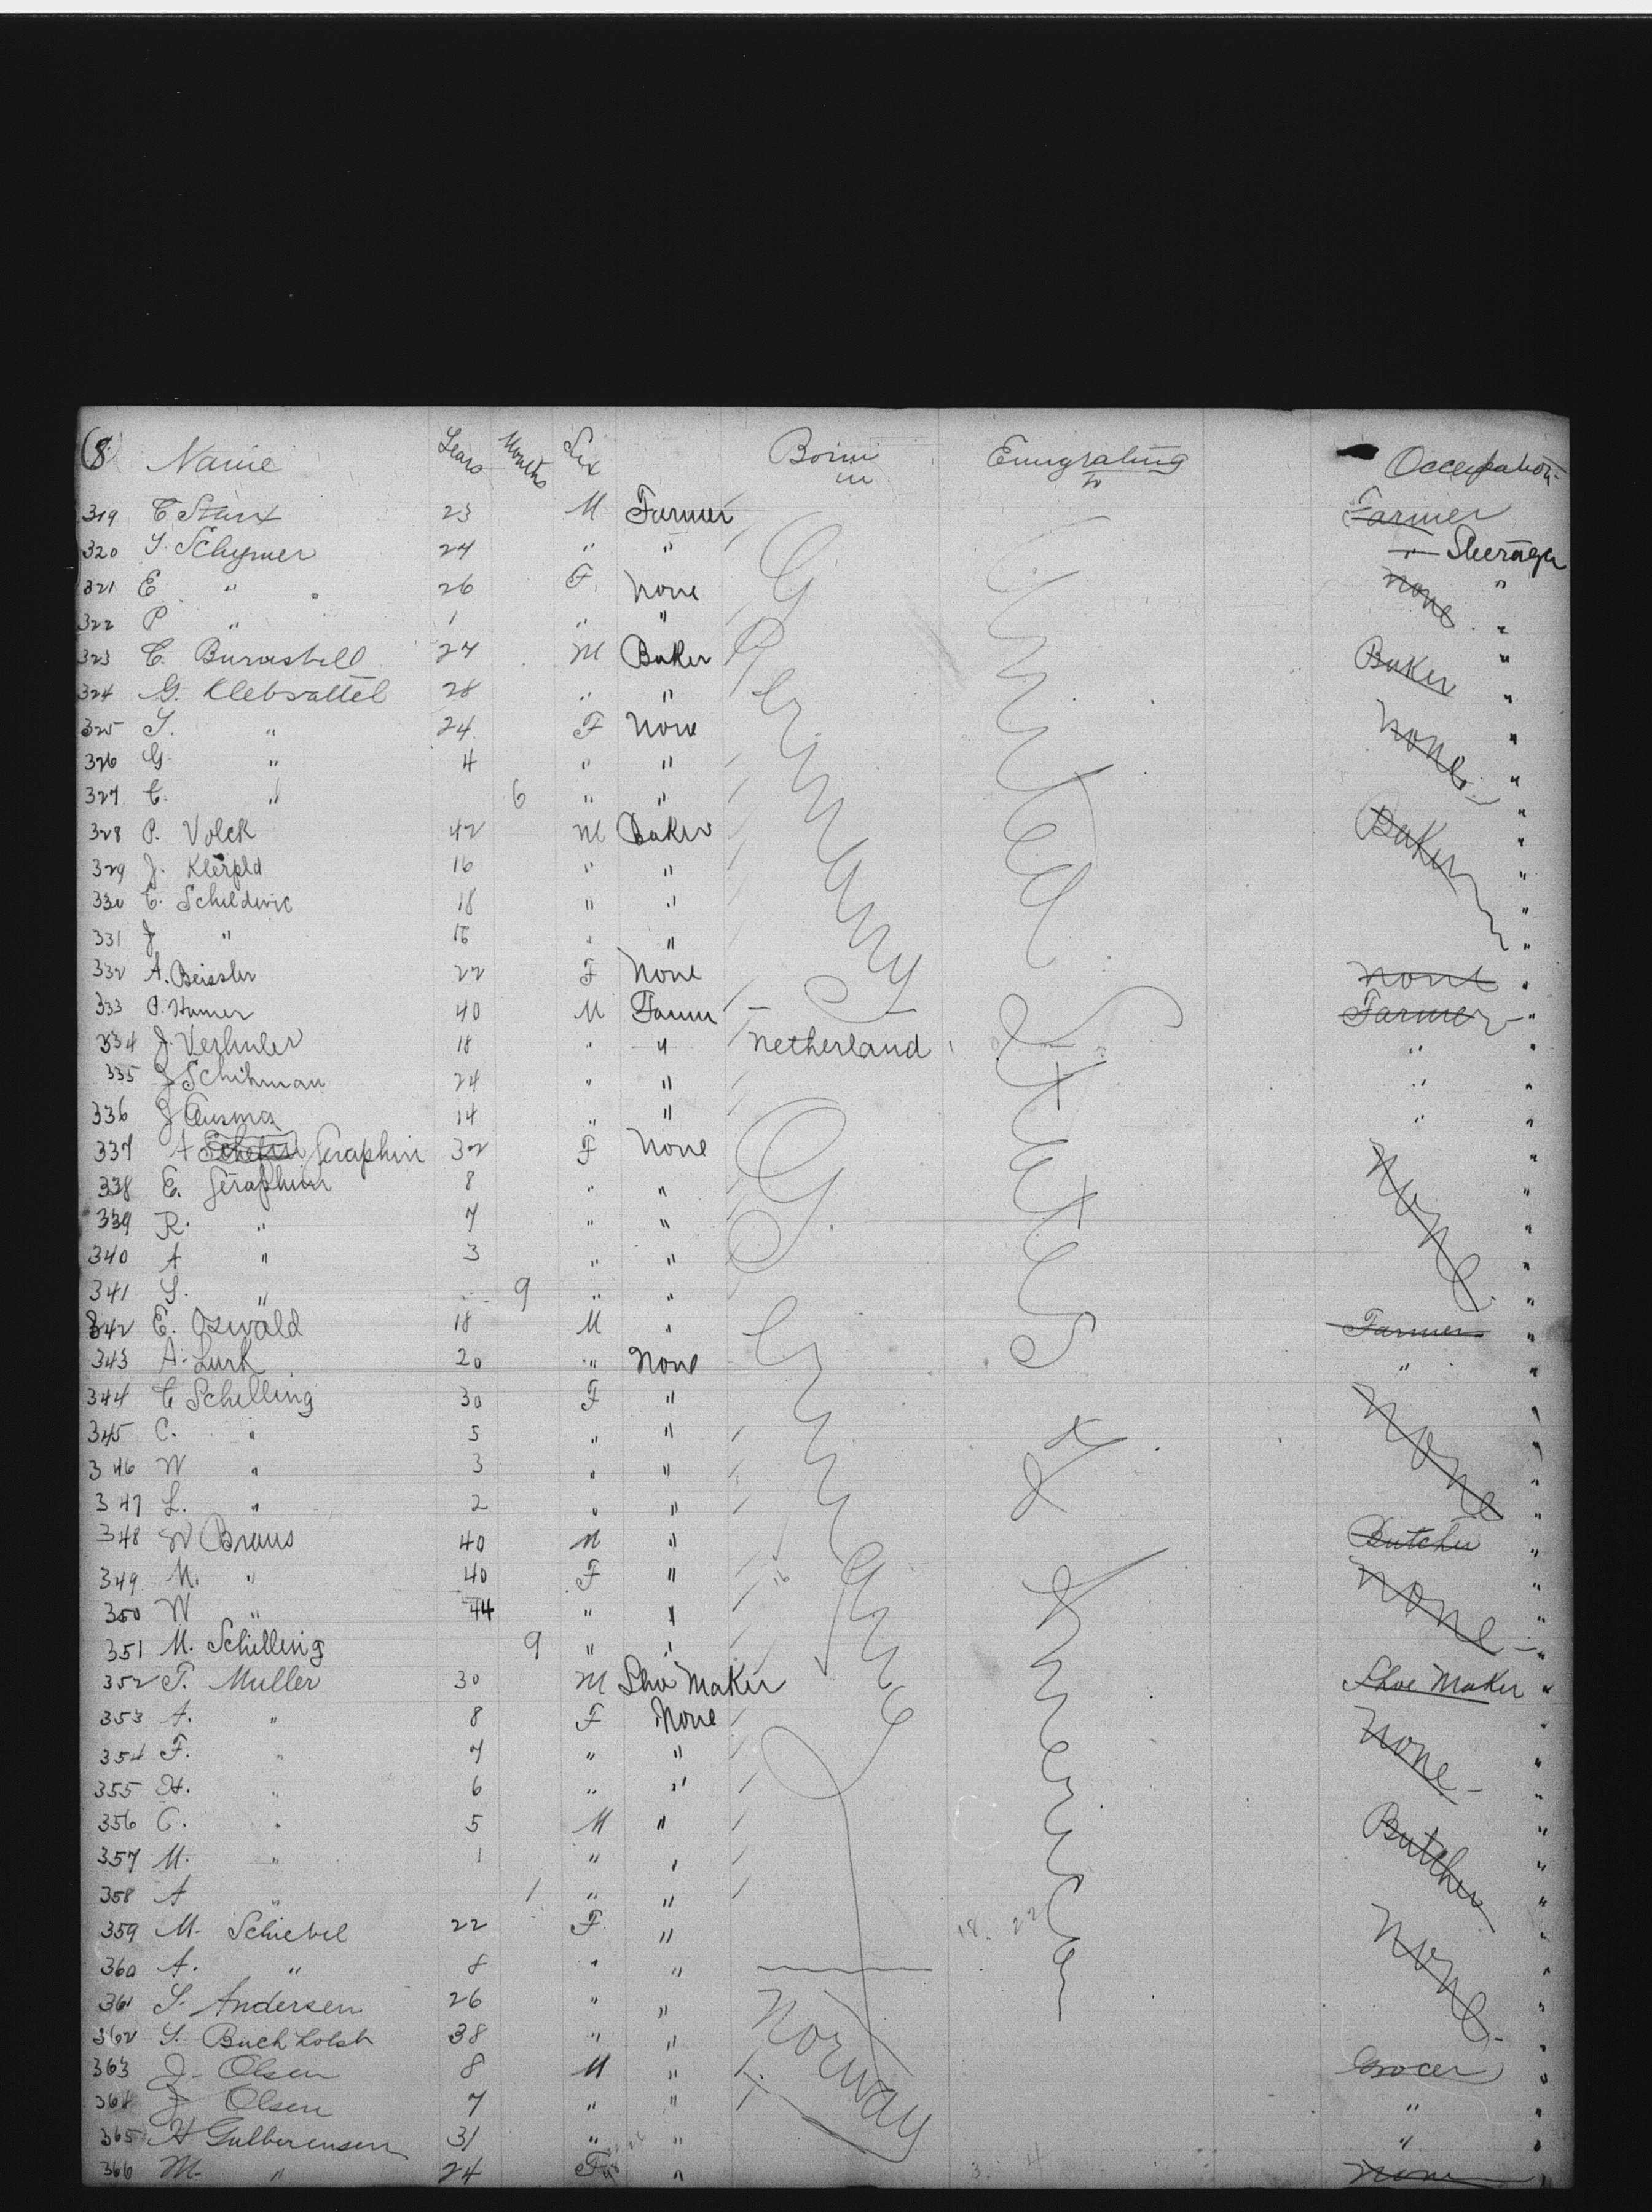 (8) Name Years Months Sex Born in Emigrating to Occupation
319 C Stark 23 M Farmer Farmer
320 S. Schymer 24 " " " Steerage
321 E " 26 F none none "
322 P " 1 " " "
323 C. 27 M Baker Baker "
324 G. Klebsattel 28 " " "
325 S. " 24 F none none "
326 G " 4 " " "
327 C. " 6 " " "
328 P. Volck 42 M Baker Baker "
329 J. 16 " " "
330 C. Scheldwic 18 " " "
331 J " 16 " " "
332 A. Beissler 22 F none none "
333 P. Hamer 40 M Farmer "
334 J. Verhuler 18 " " Netherland " "
335 J Schihman 24 " " " "
336 J Ausma 14 " " " "
337 A Seraphin 32 F none none "
338 E. Seraphin 8 " " "
339 R. " 7 " " "
340 A " 3 " " "
341 S. " 9 " " "
342 E. Oswald 18 M " Farmer "
343 A. Lurk 20 " none " "
344 C Schilling 30 F " none "
345 C. " 5 " " "
346 W " 3 " " "
347 L. " 2 " " "
348 W Braus 40 M " Butcher "
349 M. " 40 F " none "
350 W " 44 " " "
351 M. Schilling 9 " " "
352 T. Muller 30 M Shoe Maker Shoe Maker "
353 A. " 8 F None none "
354 F. " 7 " " "
355 H. " 6 " " "
356 C. " 5 M " Butcher "
357 M. " 1 " " "
358 A " 1 " " "
359 M. Schiebel 22 F " none "
360 A. " 8 " " "
361 S. Andersen 26 " " "
362 S. Buchholst 38 " " "
363 J. Olsen 8 M " Grocer "
364 J Olsen 7 " " " "
365 H Gulberensen 31 " " " "
366 M. " 24 F " none "
Germany
Germany
Norway
United States of America